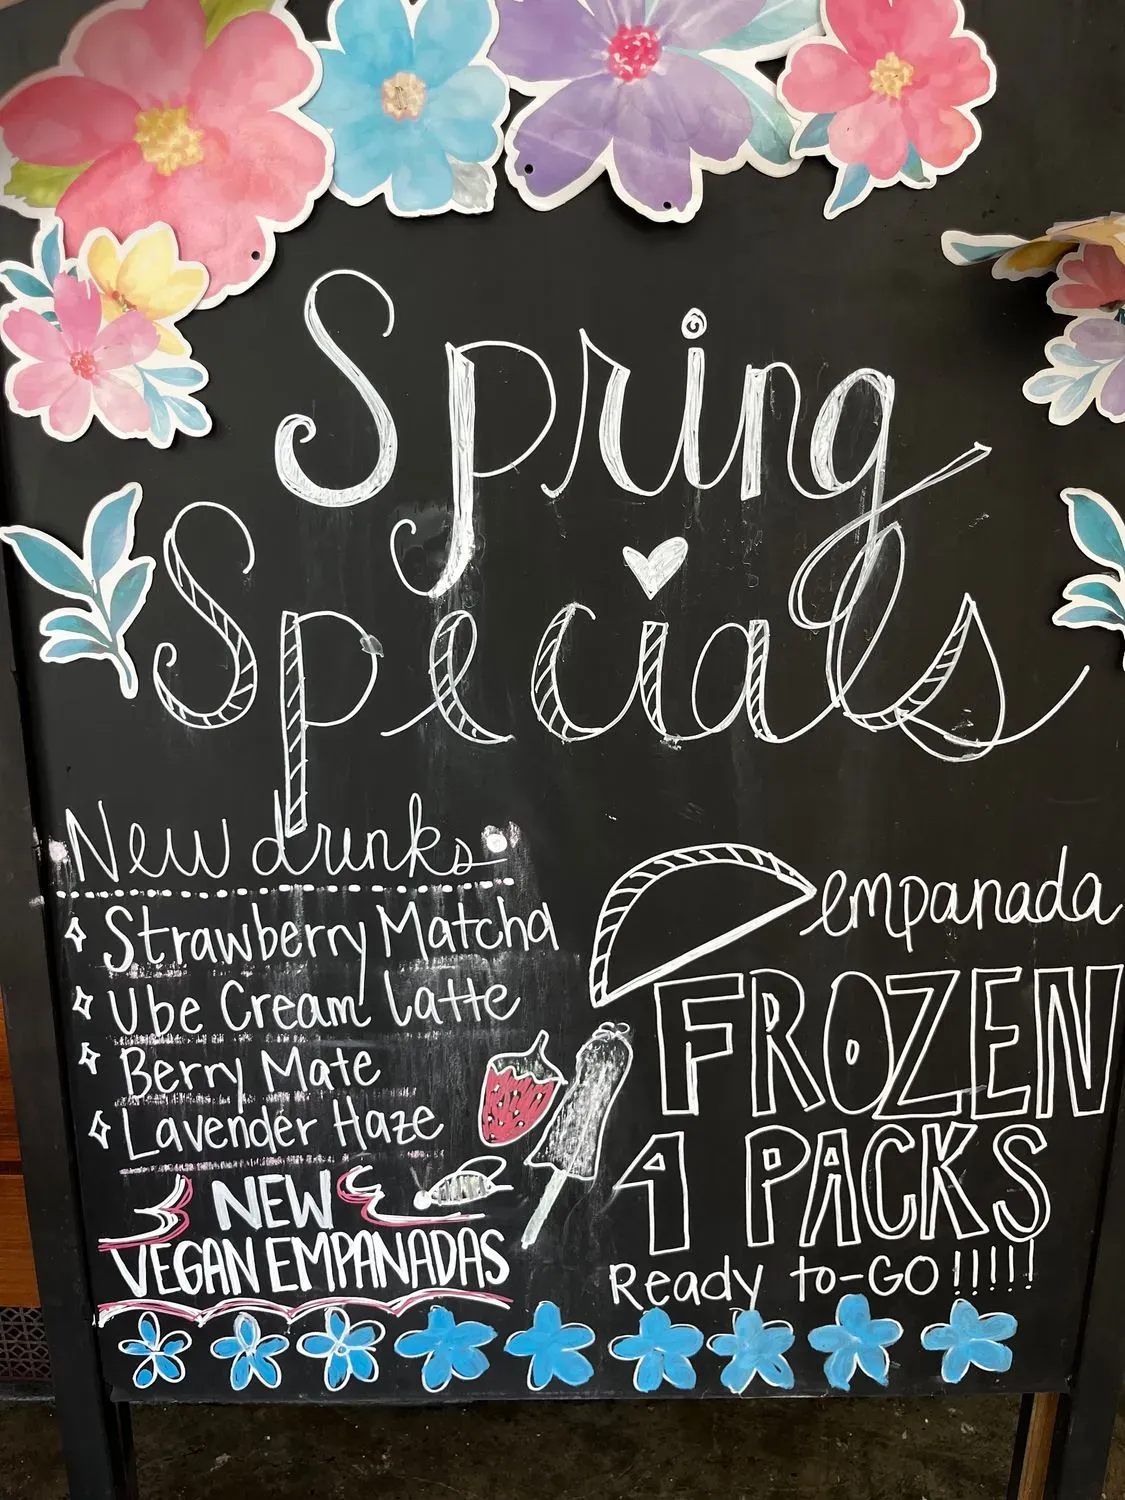 Spring
Specials
New drinks
Strawberry Matcha
Ube Cream Latte
Berry Mate
Lavender Haze
NEW
VEGAN EMPANADAS
empanada
FROZEN
4 PACKS
Ready to-GO!!!!!